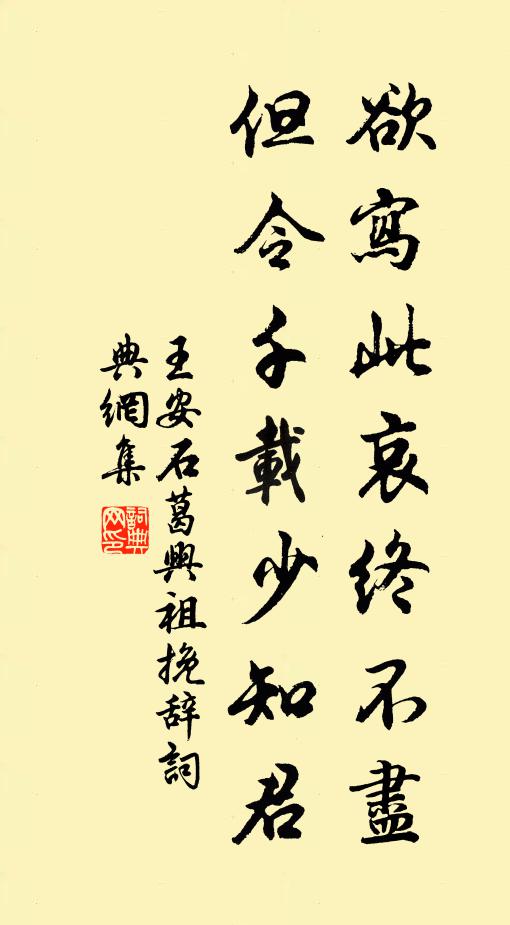 欲寫此哀終不盡
但令千載少知君
王安石葛興祖挽辞詞
典網集
詞典网印